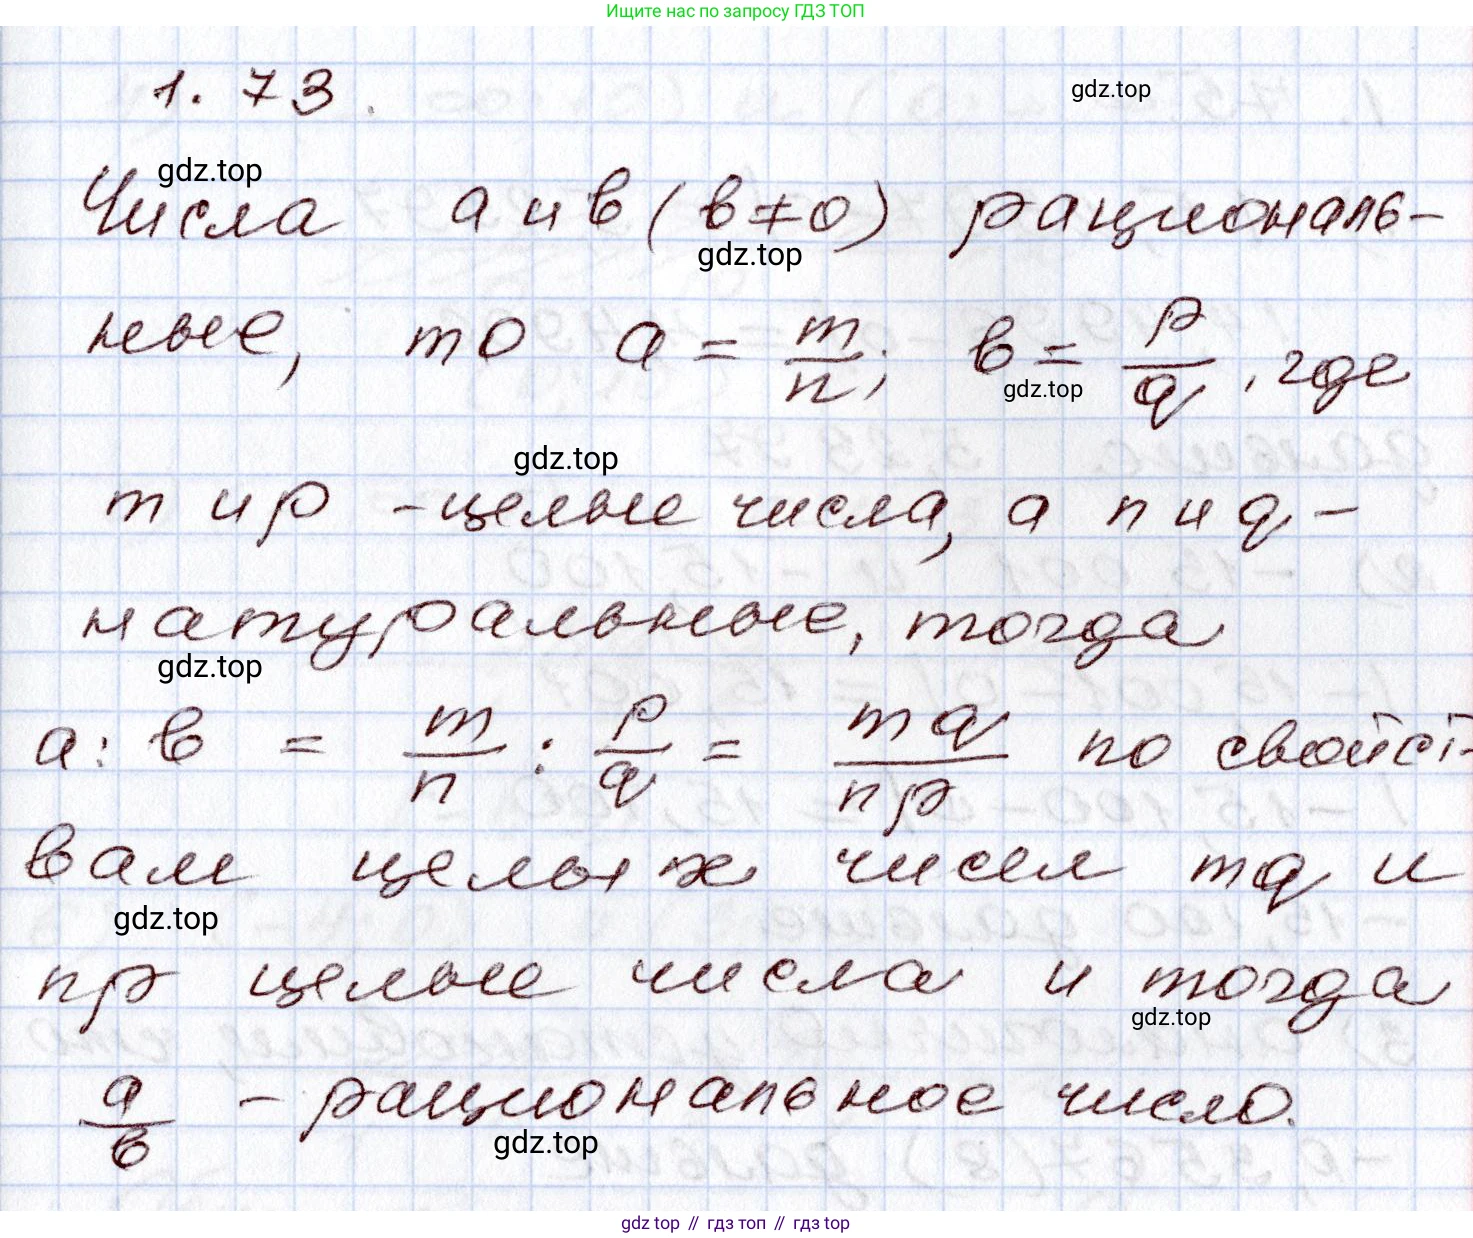 Ищите нас по запросу ГДЗ ТОП
1.73.
gdz.top
gdz.top
Числа a и b (b≠0) рациональ-
gdz.top
ные, то a = m/n; b = p/q, где
gdz.top
gdz.top
m и p - целые числа, а n и q -
натуральные, тогда
gdz.top
a : b = m/n : p/q = mq/np по свойст-
вам целых чисел mq и
gdz.top
np целые числа и тогда
gdz.top
a/b - рациональное число.
gdz.top
gdz top // гдз топ // гдз top